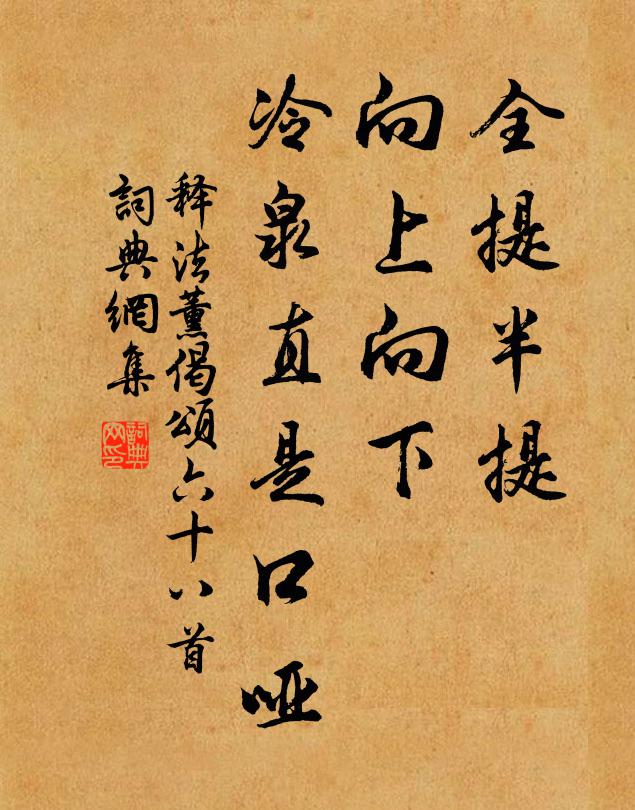 全提半提
向上向下
冷泉直是口哑
释法薰偈颂六十八首
詞典網集
詞典网印